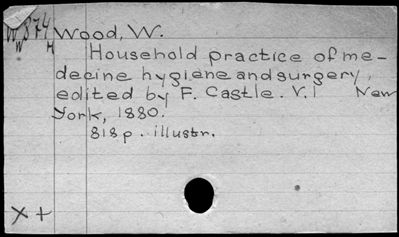 W874 Wood, W.
W H
Household practice of me-
decine hygiene and surgery,
edited by F. Castle. V.1 New
York, 1880.
818p. illustr.
X +